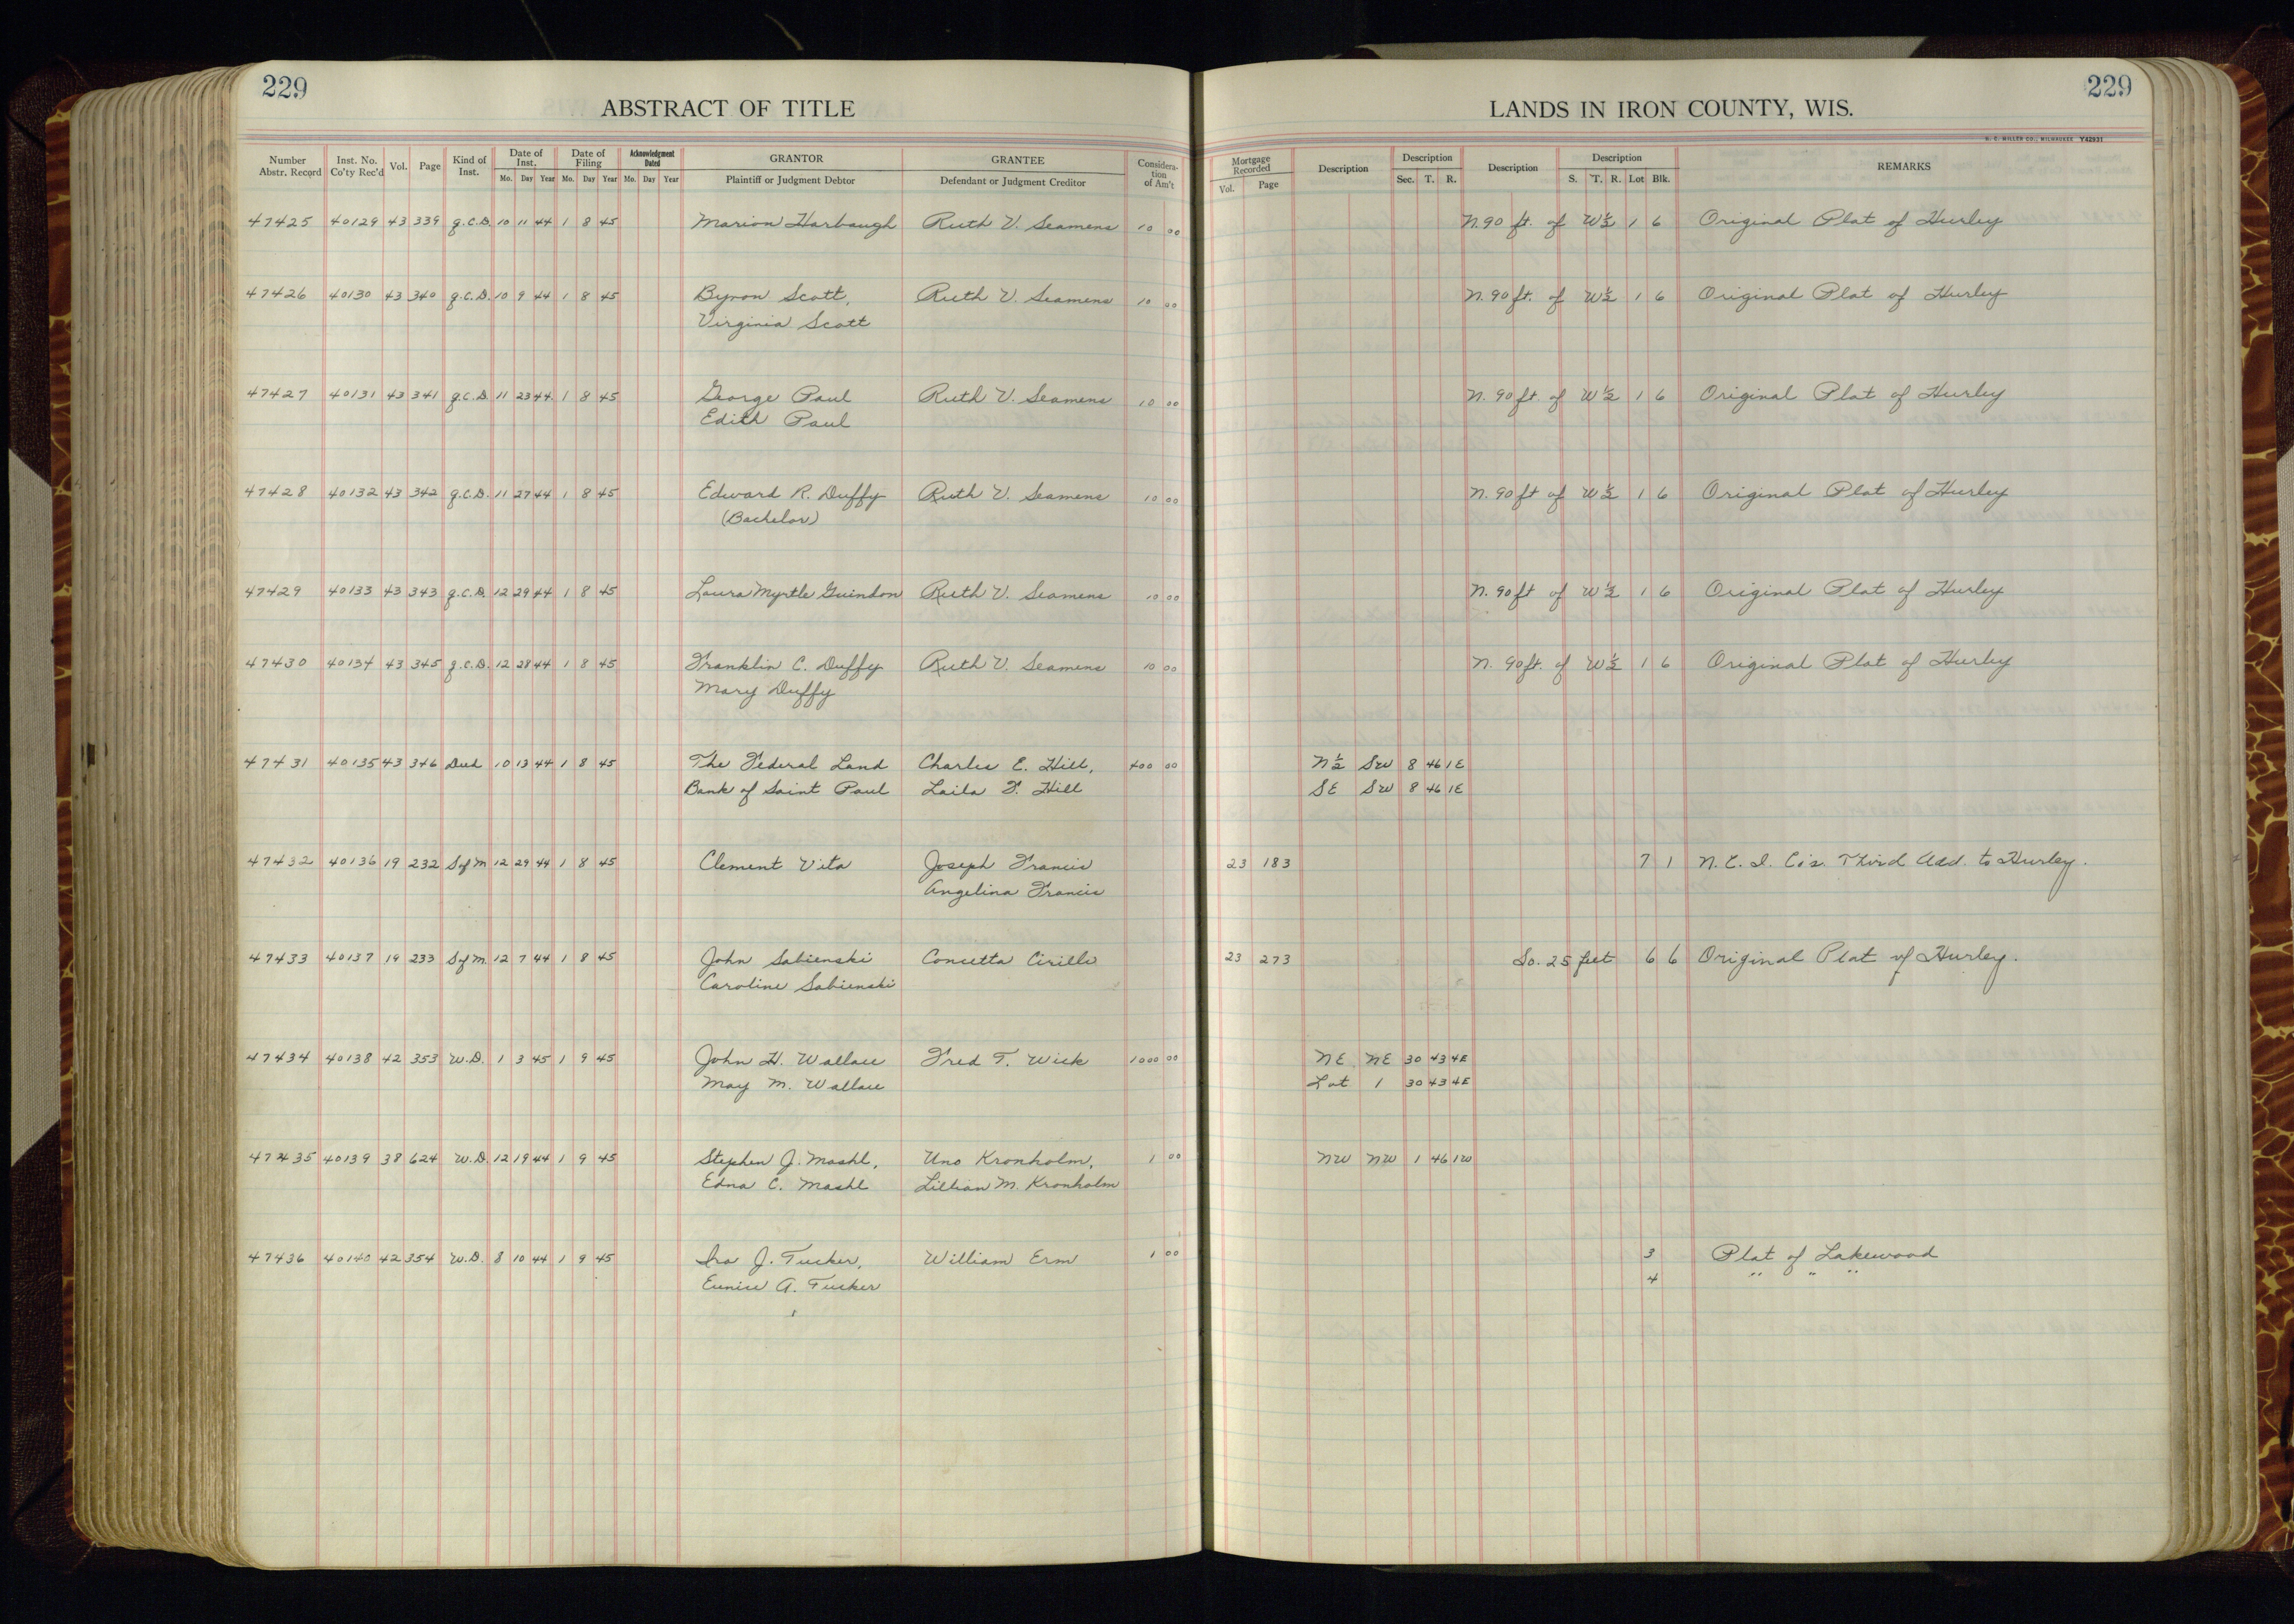 229
229
ABSTRACT OF TITLE
LANDS IN IRON COUNTY, WIS.
H. C. MILLER CO., MILWAUKEE Y42931
Number Abstr. Record Inst. No. Co'ty Rec'd Vol. Page Kind of Inst. Date of Inst. Mo. Day Year Date of Filing Mo. Day Year Acknowledgment Dated Mo. Day Year GRANTOR Plaintiff or Judgment Debtor GRANTEE Defendant or Judgment Creditor Consideration of Am't Mortgage Recorded Vol. Page Description Description Sec. T. R. Description Description S. T. R. Lot Blk. REMARKS
47425 40129 43 339 q.C.D. 10 11 44 1 8 45 Marion Harbaugh Ruth V. Seamens 10 00 N. 90 ft. of W½ 1 6 Original Plat of Hurley
47426 40130 43 340 q.C.D. 10 9 44 1 8 45 Byron Scott, Ruth V. Seamens 10 00 N. 90 ft. of W½ 1 6 Original Plat of Hurley
Virginia Scott
47427 40131 43 341 q.C.D. 11 23 44 1 8 45 George Paul Ruth V. Seamens 10 00 N. 90 ft. of W½ 1 6 Original Plat of Hurley
Edith Paul
47428 40132 43 342 q.C.D. 11 27 44 1 8 45 Edward R. Duffy Ruth V. Seamens 10 00 N. 90 ft of W½ 1 6 Original Plat of Hurley
(Bachelor)
47429 40133 43 343 q.C.D. 12 29 44 1 8 45 Laura Myrtle Guindon Ruth V. Seamens 10 00 N. 90 ft of W½ 1 6 Original Plat of Hurley
47430 40134 43 345 q.C.D. 12 28 44 1 8 45 Franklin C. Duffy Ruth V. Seamens 10 00 N. 90 ft. of W½ 1 6 Original Plat of Hurley
Mary Duffy
47431 40135 43 346 Deed 10 13 44 1 8 45 The Federal Land Charles E. Hill, 400 00 N½ SW 8 46 1E
Bank of Saint Paul Laila F. Hill SE SW 8 46 1E
47432 40136 19 232 Sf M 12 29 44 1 8 45 Clement Vita Joseph Francis 23 183 7 1 N. C. I. Co's. Third Add. to Hurley.
Angelina Francis
47433 40137 19 233 Sf M. 12 7 44 1 8 45 John Sabienski Concetta Cirillo 23 273 So. 25 feet 6 6 Original Plat of Hurley.
Caroline Sabienski
47434 40138 42 353 W.D. 1 3 45 1 9 45 John H. Wallace Fred T. Wick 1000 00 NE NE 30 43 4E
May M. Wallace Lot 1 30 43 4E
47435 40139 38 624 W.D. 12 19 44 1 9 45 Stephen J. Mashl, Uno Kronholm, 1 00 NW NW 1 46 1W
Edna C. Mashl Lillian M. Kronholm
47436 40140 42 354 W.D. 8 10 44 1 9 45 Ira J. Tucker, William Erm 1 00 3 Plat of Lakewood
Eunice A. Tucker 4 " " "